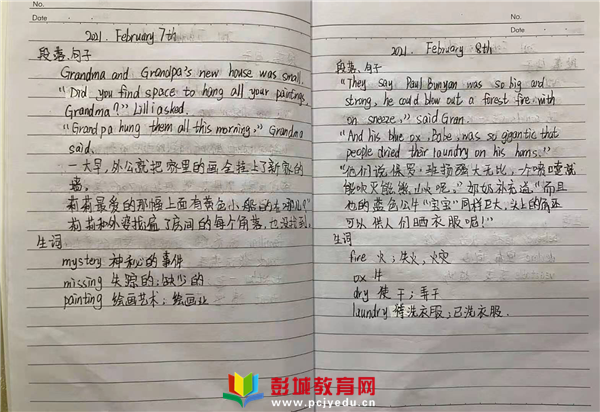 No.
Date
2021. February 7th
段落、句子
Grandma and Grandpa's new house was small.
"Did you find space to hang all your paintings,
Grandma?" Lilli asked.
"Grandpa hung them all this morning," Grandma
said.
一大早,外公就把家里的画全挂上了新家的
墙。
莉莉最爱的那幅上面有黄色小船的去哪儿?"
莉莉和外婆找遍了房间的每个角落,也没找到。
生词:
mystery 神秘的事件
missing 失踪的;缺少的
painting 绘画艺术;绘画业
No.
Date
2021. February 8th
段落、句子
"They say Paul Bunyan was so big and
strong, he could blow out a forest fire with
on sneeze," said Gran.
"And his blue ox, Babe, was so gigantic that
people dried their laundry on his horns."
"他们说保罗·班扬强大无比,一个喷嚏就
能吹灭熊熊山火呢,"奶奶补充道,"而且
他的蓝色公牛"宝宝"同样巨大,头上的角还
可以供人们晒衣服呢!"
生词
fire 火;失火,火灾
ox 牛
dry 使干;弄干
laundry 待洗衣服;已洗衣服.
彭城教育网
www.pcjyedu.cn